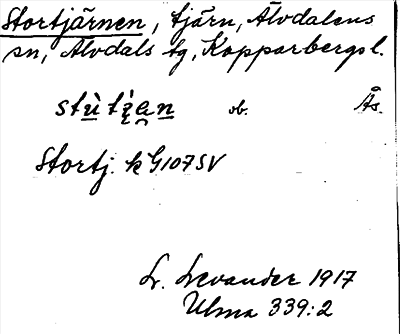 Stortjärnen, tjärn, Älvdalens
sn, Älvdals tg, Kopparbergs l.
ob. Ås.
Stortj. k G107SV
L. Levander 1917
Ulma 339:2